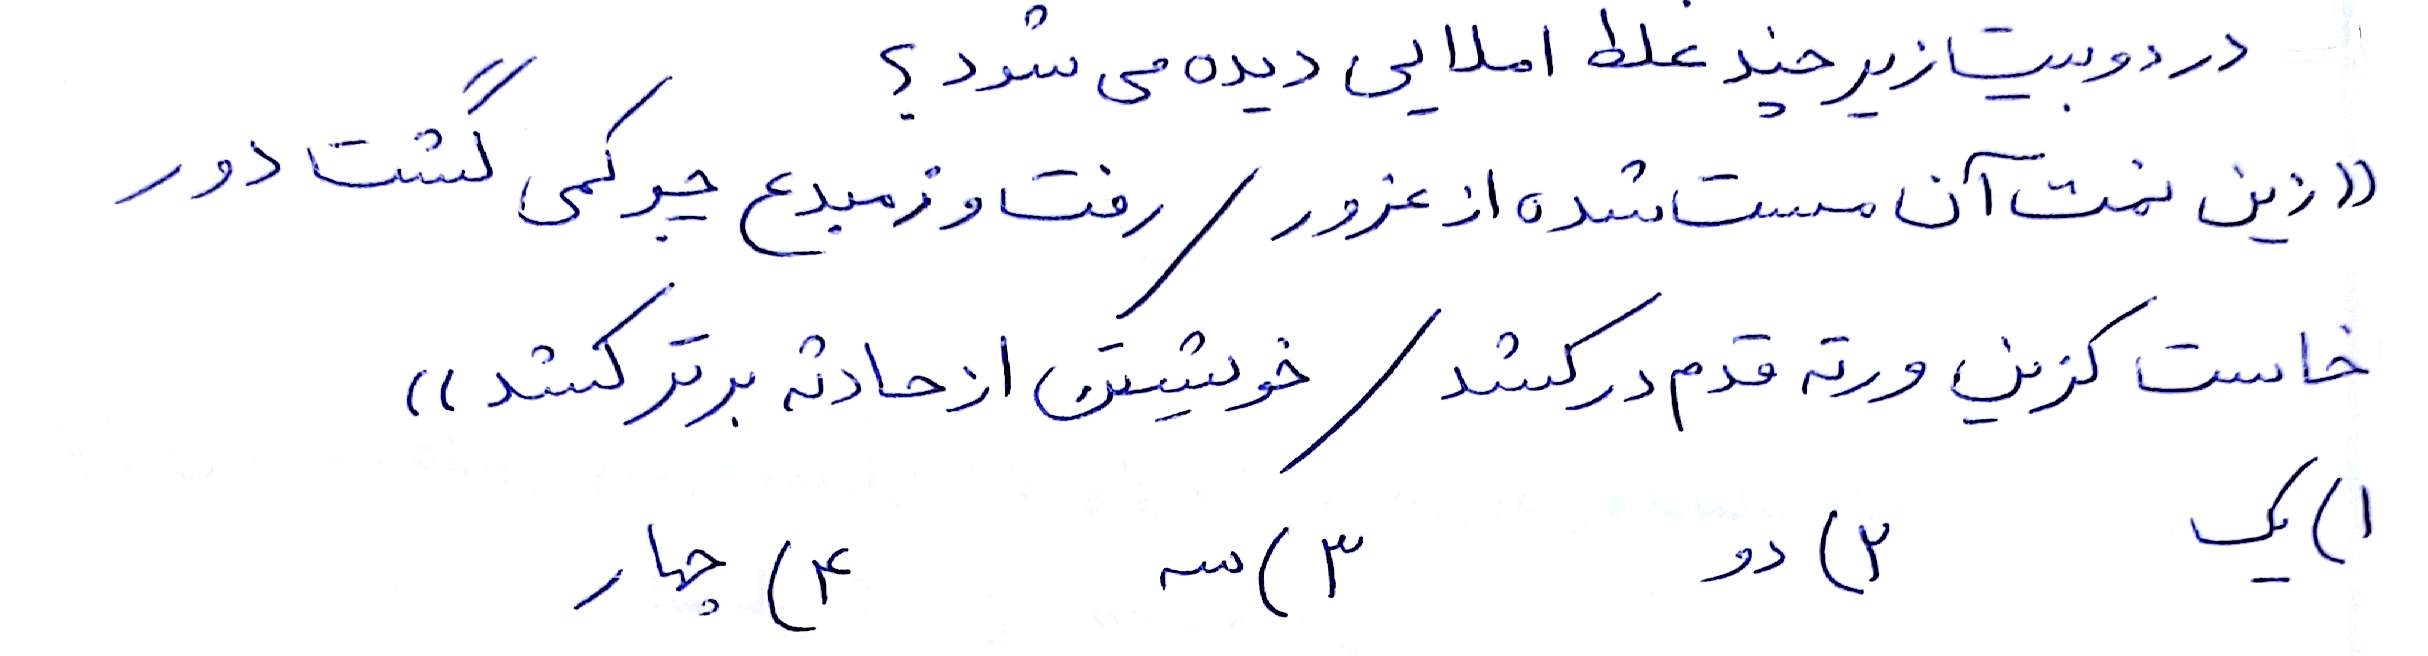 در دو بیت زیر چند غلط املایی دیده می شود؟
«زین نمت آن مست شده از غرور / رفت و ز مبدع چو کمی گشت دور
خاست کزین ورته قدم درکشد / خویشتن از حادثه برتر کشد»
۱) یک ۲) دو ۳) سه ۴) چهار